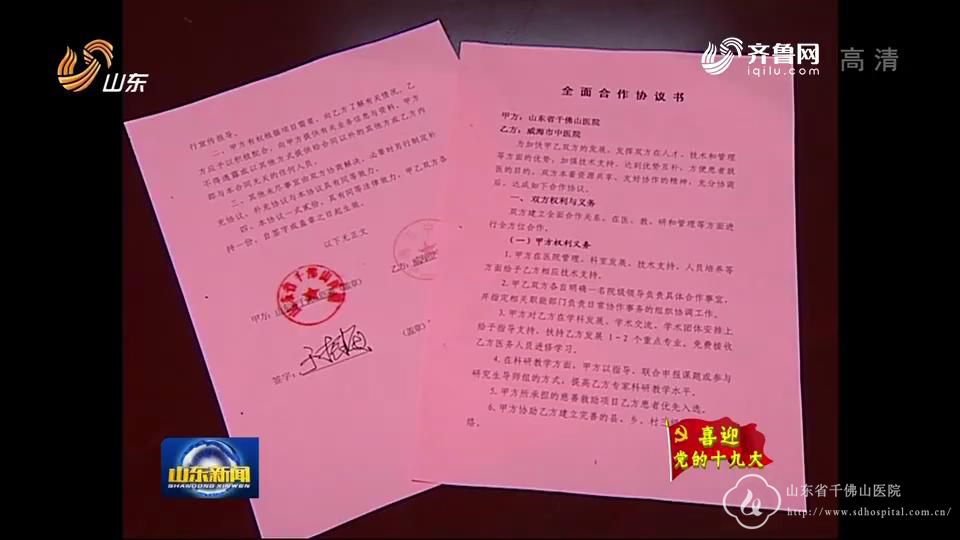 山东
齐鲁网
iqilu.com
高清
行宣传报导。
二、甲方有权根据项目需要，向乙方了解有关情况，乙
方应予以积极配合，向甲方提供有关业务信息与资料。甲方
不得透露或以其他方式提供给合同以外的其他方或乙方内
部与本合同无关的任何人员。
三、其他未尽事宜由双方协商解决，必要时另行制定补
充协议，补充协议与本协议具有同等效力。
四、本协议一式贰份，具有同等法律效力，甲乙双方各
持一份，自签字或盖章之日起生效。
以下无正文
甲方：
乙方：
（盖章）
签字：
全面合作协议书
甲方：山东省千佛山医院
乙方：威海市中医院
为加快甲乙双方的发展，发挥双方在人才、技术和管理
等方面的优势，加强技术支持，达到优势互补，方便患者就
医的目的，双方本着资源共享、友好协作的精神，充分协商
后，达成如下合作协议。
一、双方权利与义务
双方建立全面合作关系，在医、教、研和管理等方面进
行全方位合作。
（一）甲方权利义务
1.甲方在医院管理、科室发展、技术支持、人员培养等
方面给予乙方相应技术支持。
2.甲乙双方各自明确一名院级领导负责具体合作事宜，
并指定相关职能部门负责日常协作事务的组织协调工作。
3.甲方对乙方在学科发展、学术交流、学术团体安排上
给予指导支持，扶持乙方发展1-2个重点专业，免费接收
乙方医务人员进修学习。
4.在科研教学方面，甲方以指导、联合申报课题或参与
研究生导师组的方式，提高乙方专家科研教学水平。
5.甲方所承担的慈善救助项目乙方患者优先入选。
6.甲方协助乙方建立完善的县、乡、村三
络。
山东新闻
SHANDONG XINWEN
喜迎
党的十九大
山东省千佛山医院
http://www.sdhospital.com.cn/